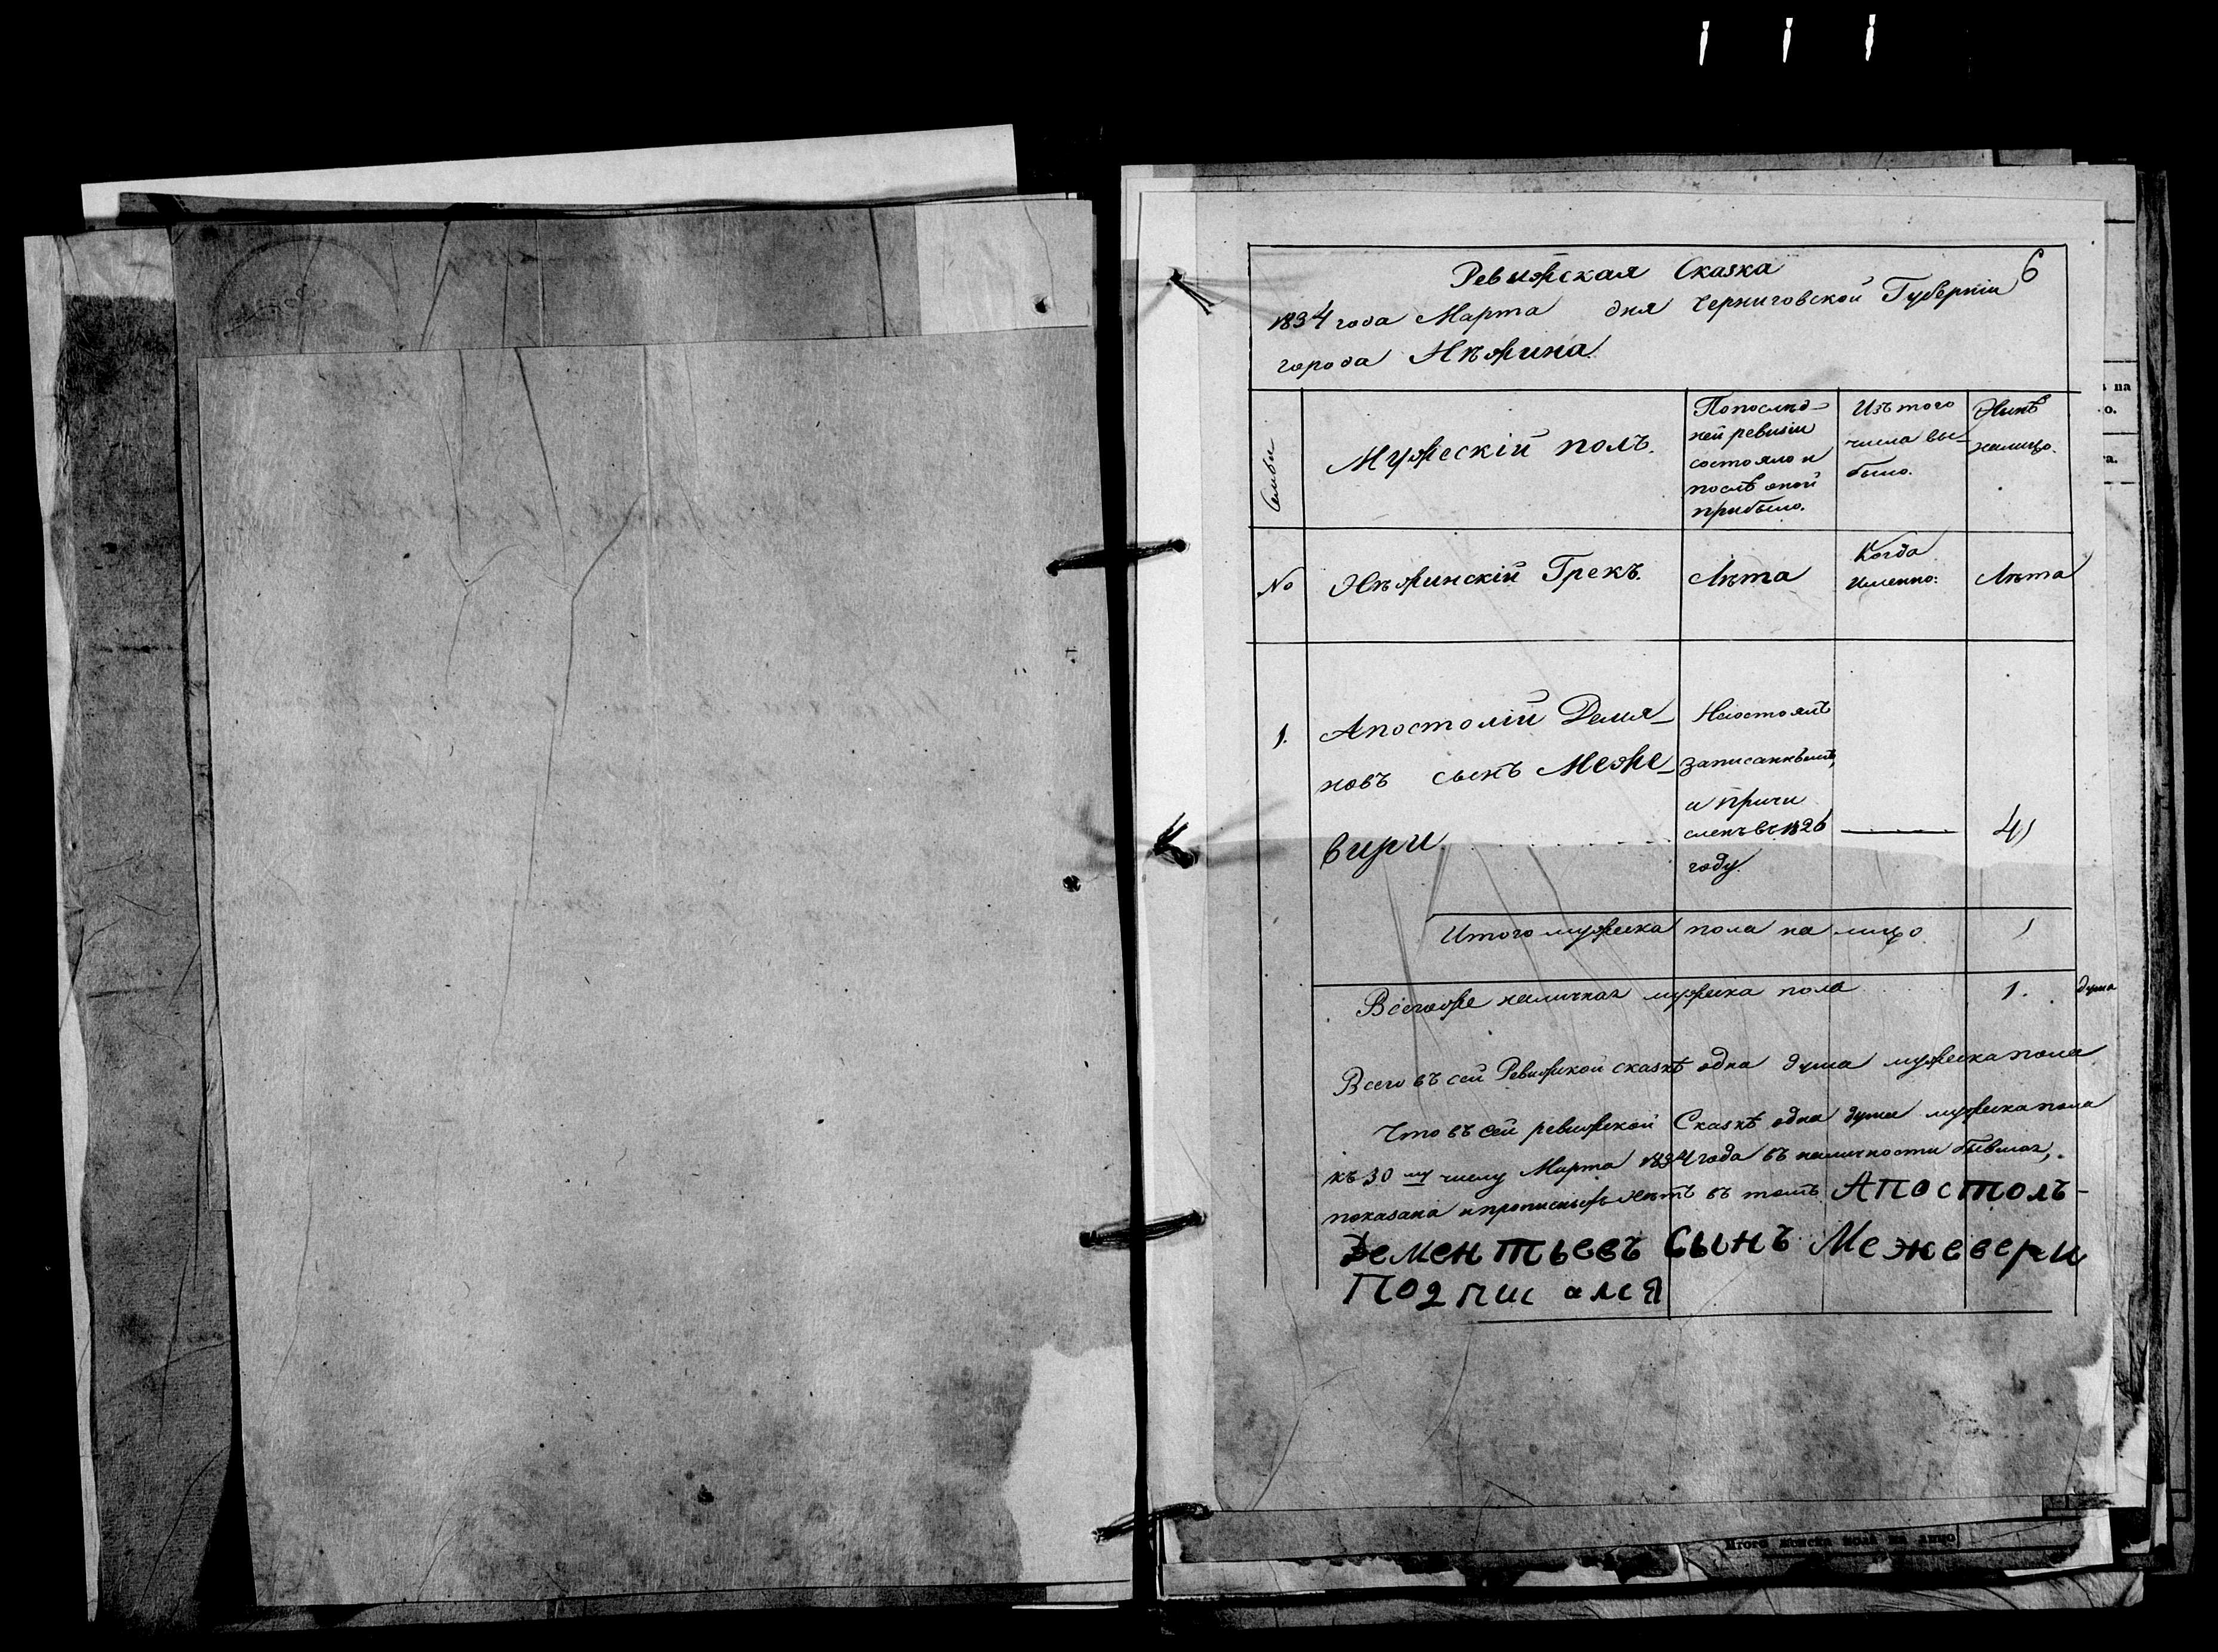 6
Ревижская Сказка
1834 года Марта дня Черниговской Губерніи
города Нѣжина.
Семьи
Мужескій полъ.
Попослѣд-
ней ревизіи
состояло и
послѣ оной
прибыло.
Изъ того
числа вы-
было.
Нынѣ
налицо.
№
Нѣжинскій Грекъ.
Лѣта
Когда
именно:
Лѣта
1.
Апостолій Демя-
новъ сынъ Меже-
вири
Несостоялъ
записаннымъ,
и причи
сленъ въ 1826
году.
41
Итого мужеска пола на лицо 1
Всегоже наличная мужеска пола 1. душа
Всего въ сей Ревижской сказкѣ одна душа мужеска пола
Что въ сей ревижской Сказкѣ одна душа мужеска пола
къ 30 му числу Марта 1834 года въ наличности бывшая,
показана и прописныхъ нѣтъ въ томъ Апостолъ-
Дементьевъ Сынъ Межевери
Подписался
на
о.
а.
Итого женска пола на лицо